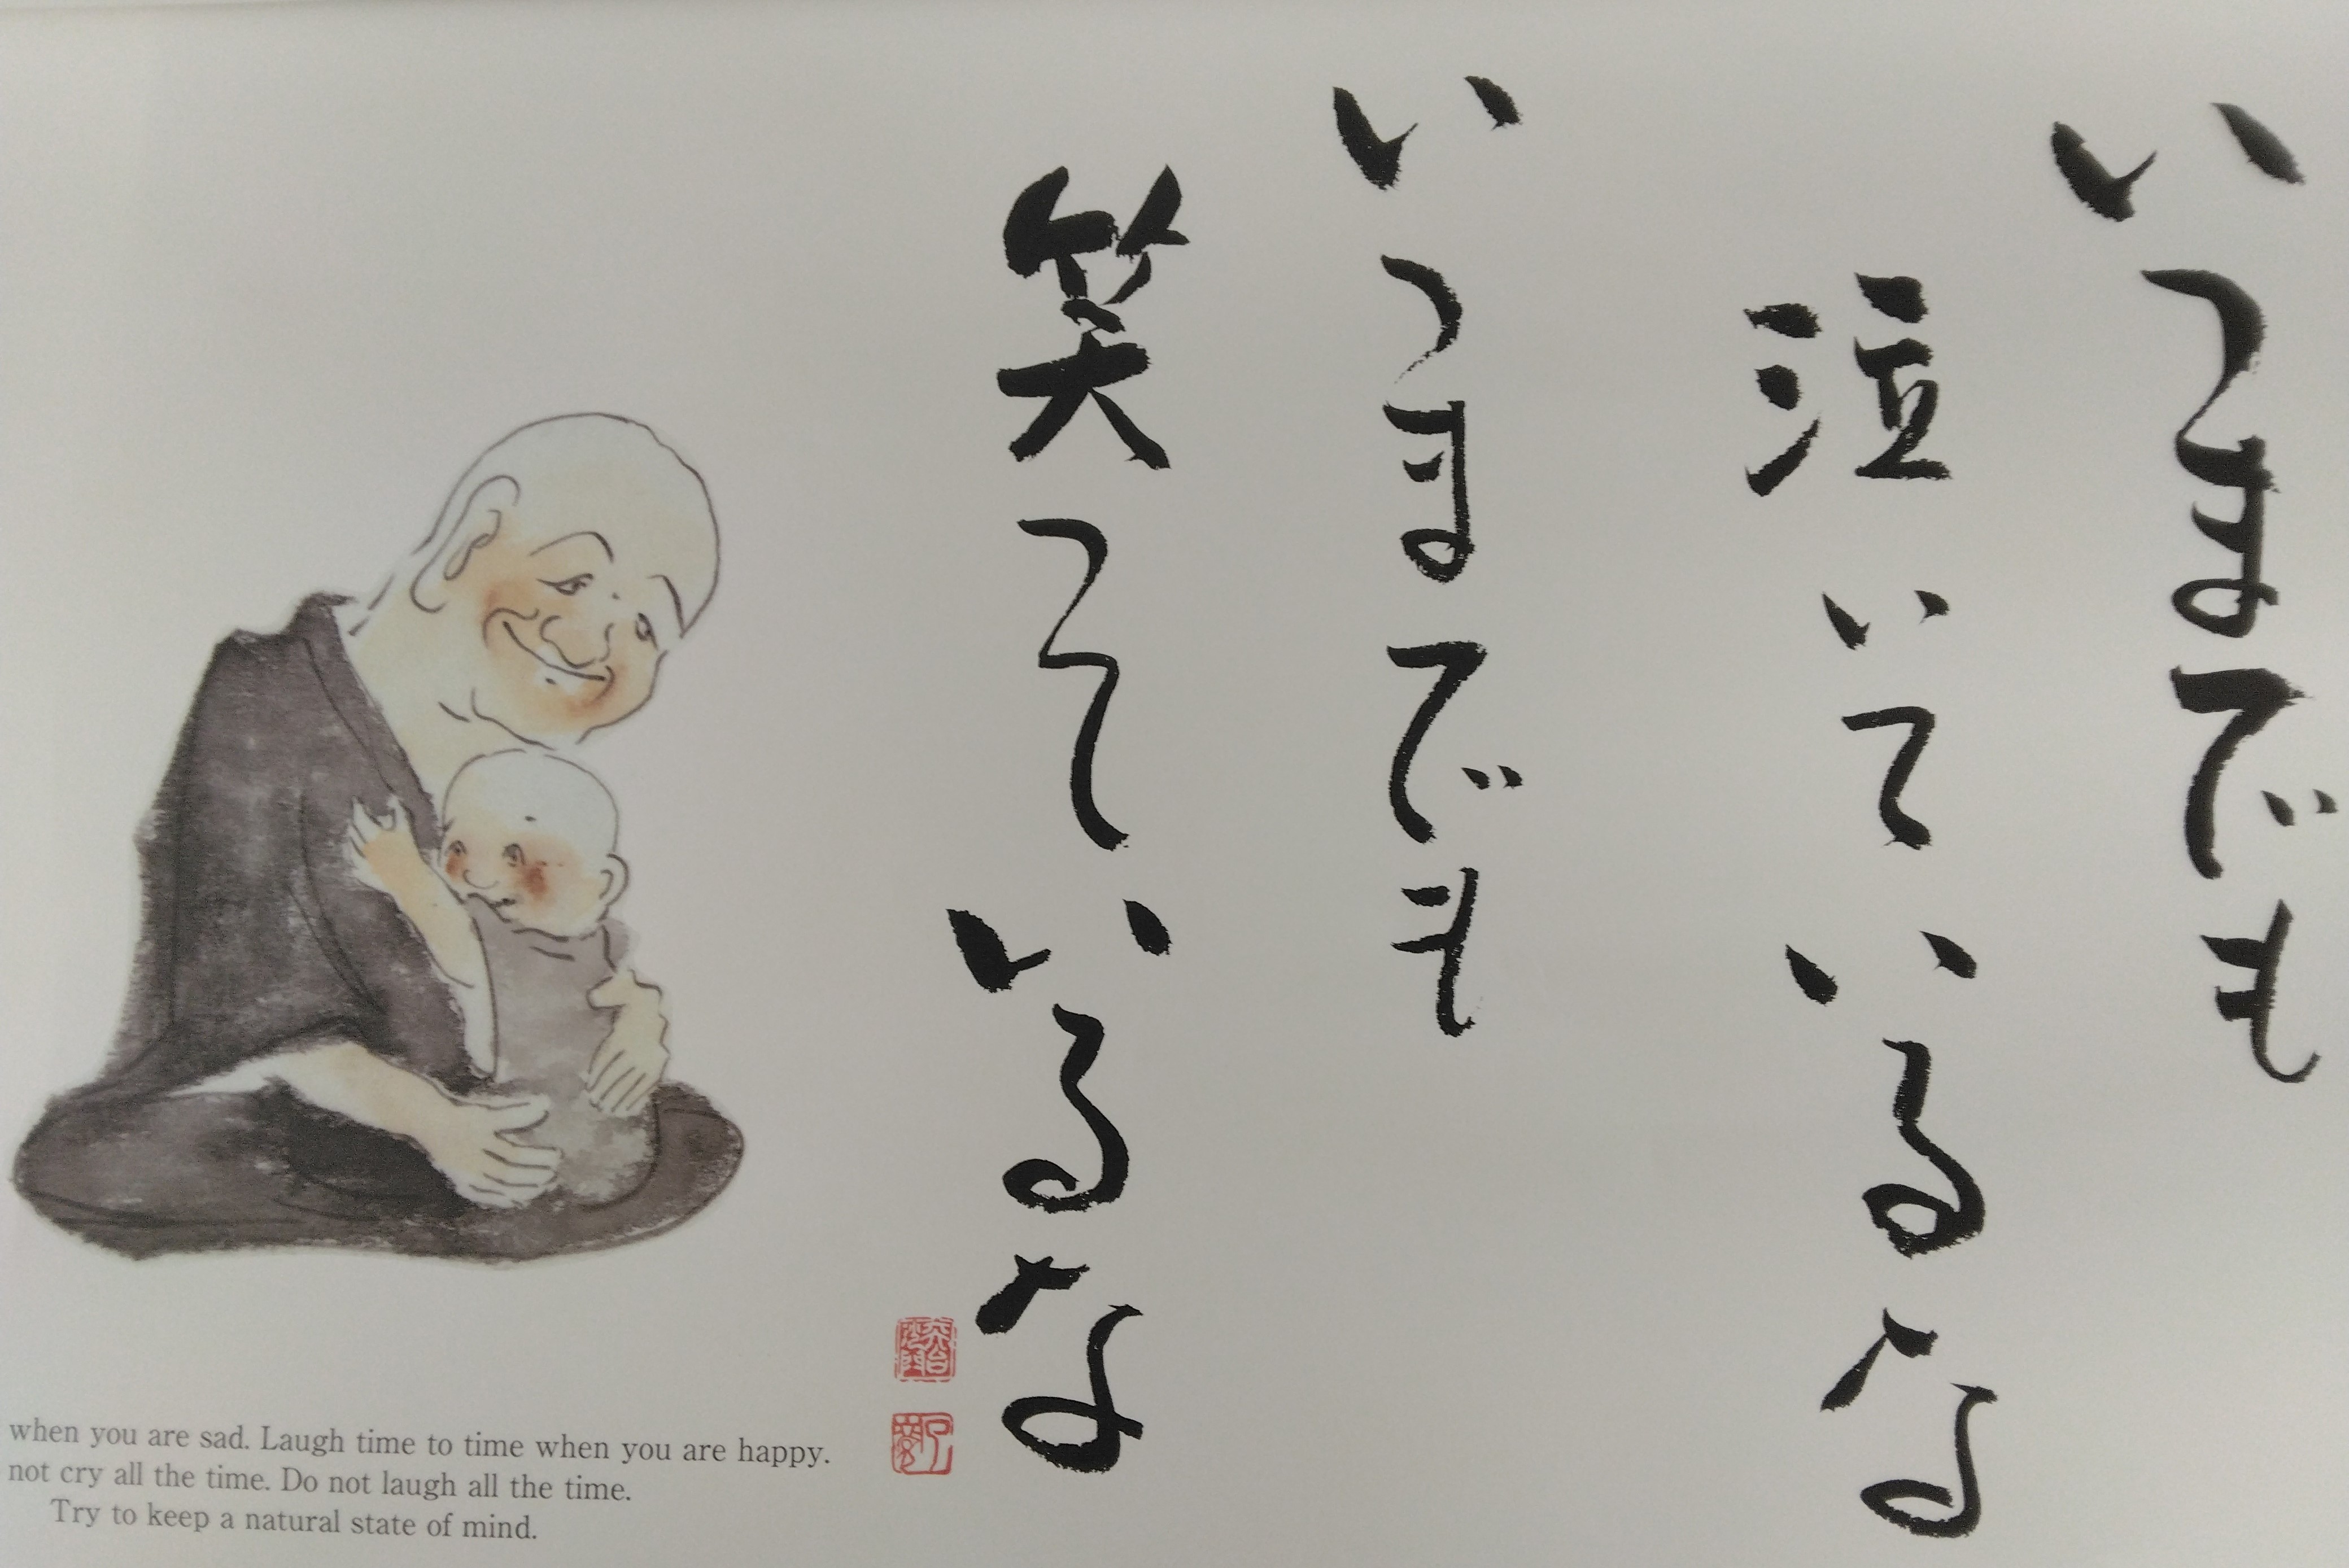 いつまでも
泣いているな
いつまでも
笑っているな
when you are sad. Laugh time to time when you are happy.
not cry all the time. Do not laugh all the time.
Try to keep a natural state of mind.